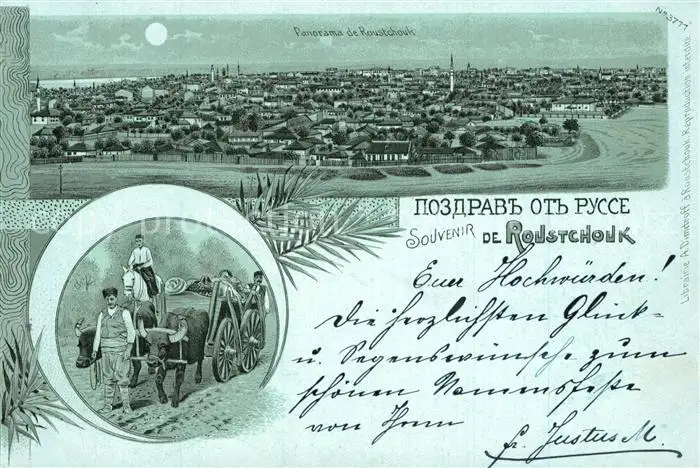 Panorama de Roustchouk
No 3777
ПОЗДРАВЪ ОТЪ РУССЕ
SOUVENIR DE ROUSTCHOUK
Euer Hochwürden!
Die herzlichsten Glück-
u. Segenswünsche zum
schönen Namensfeste
von Ihrem
fr. Justus M.